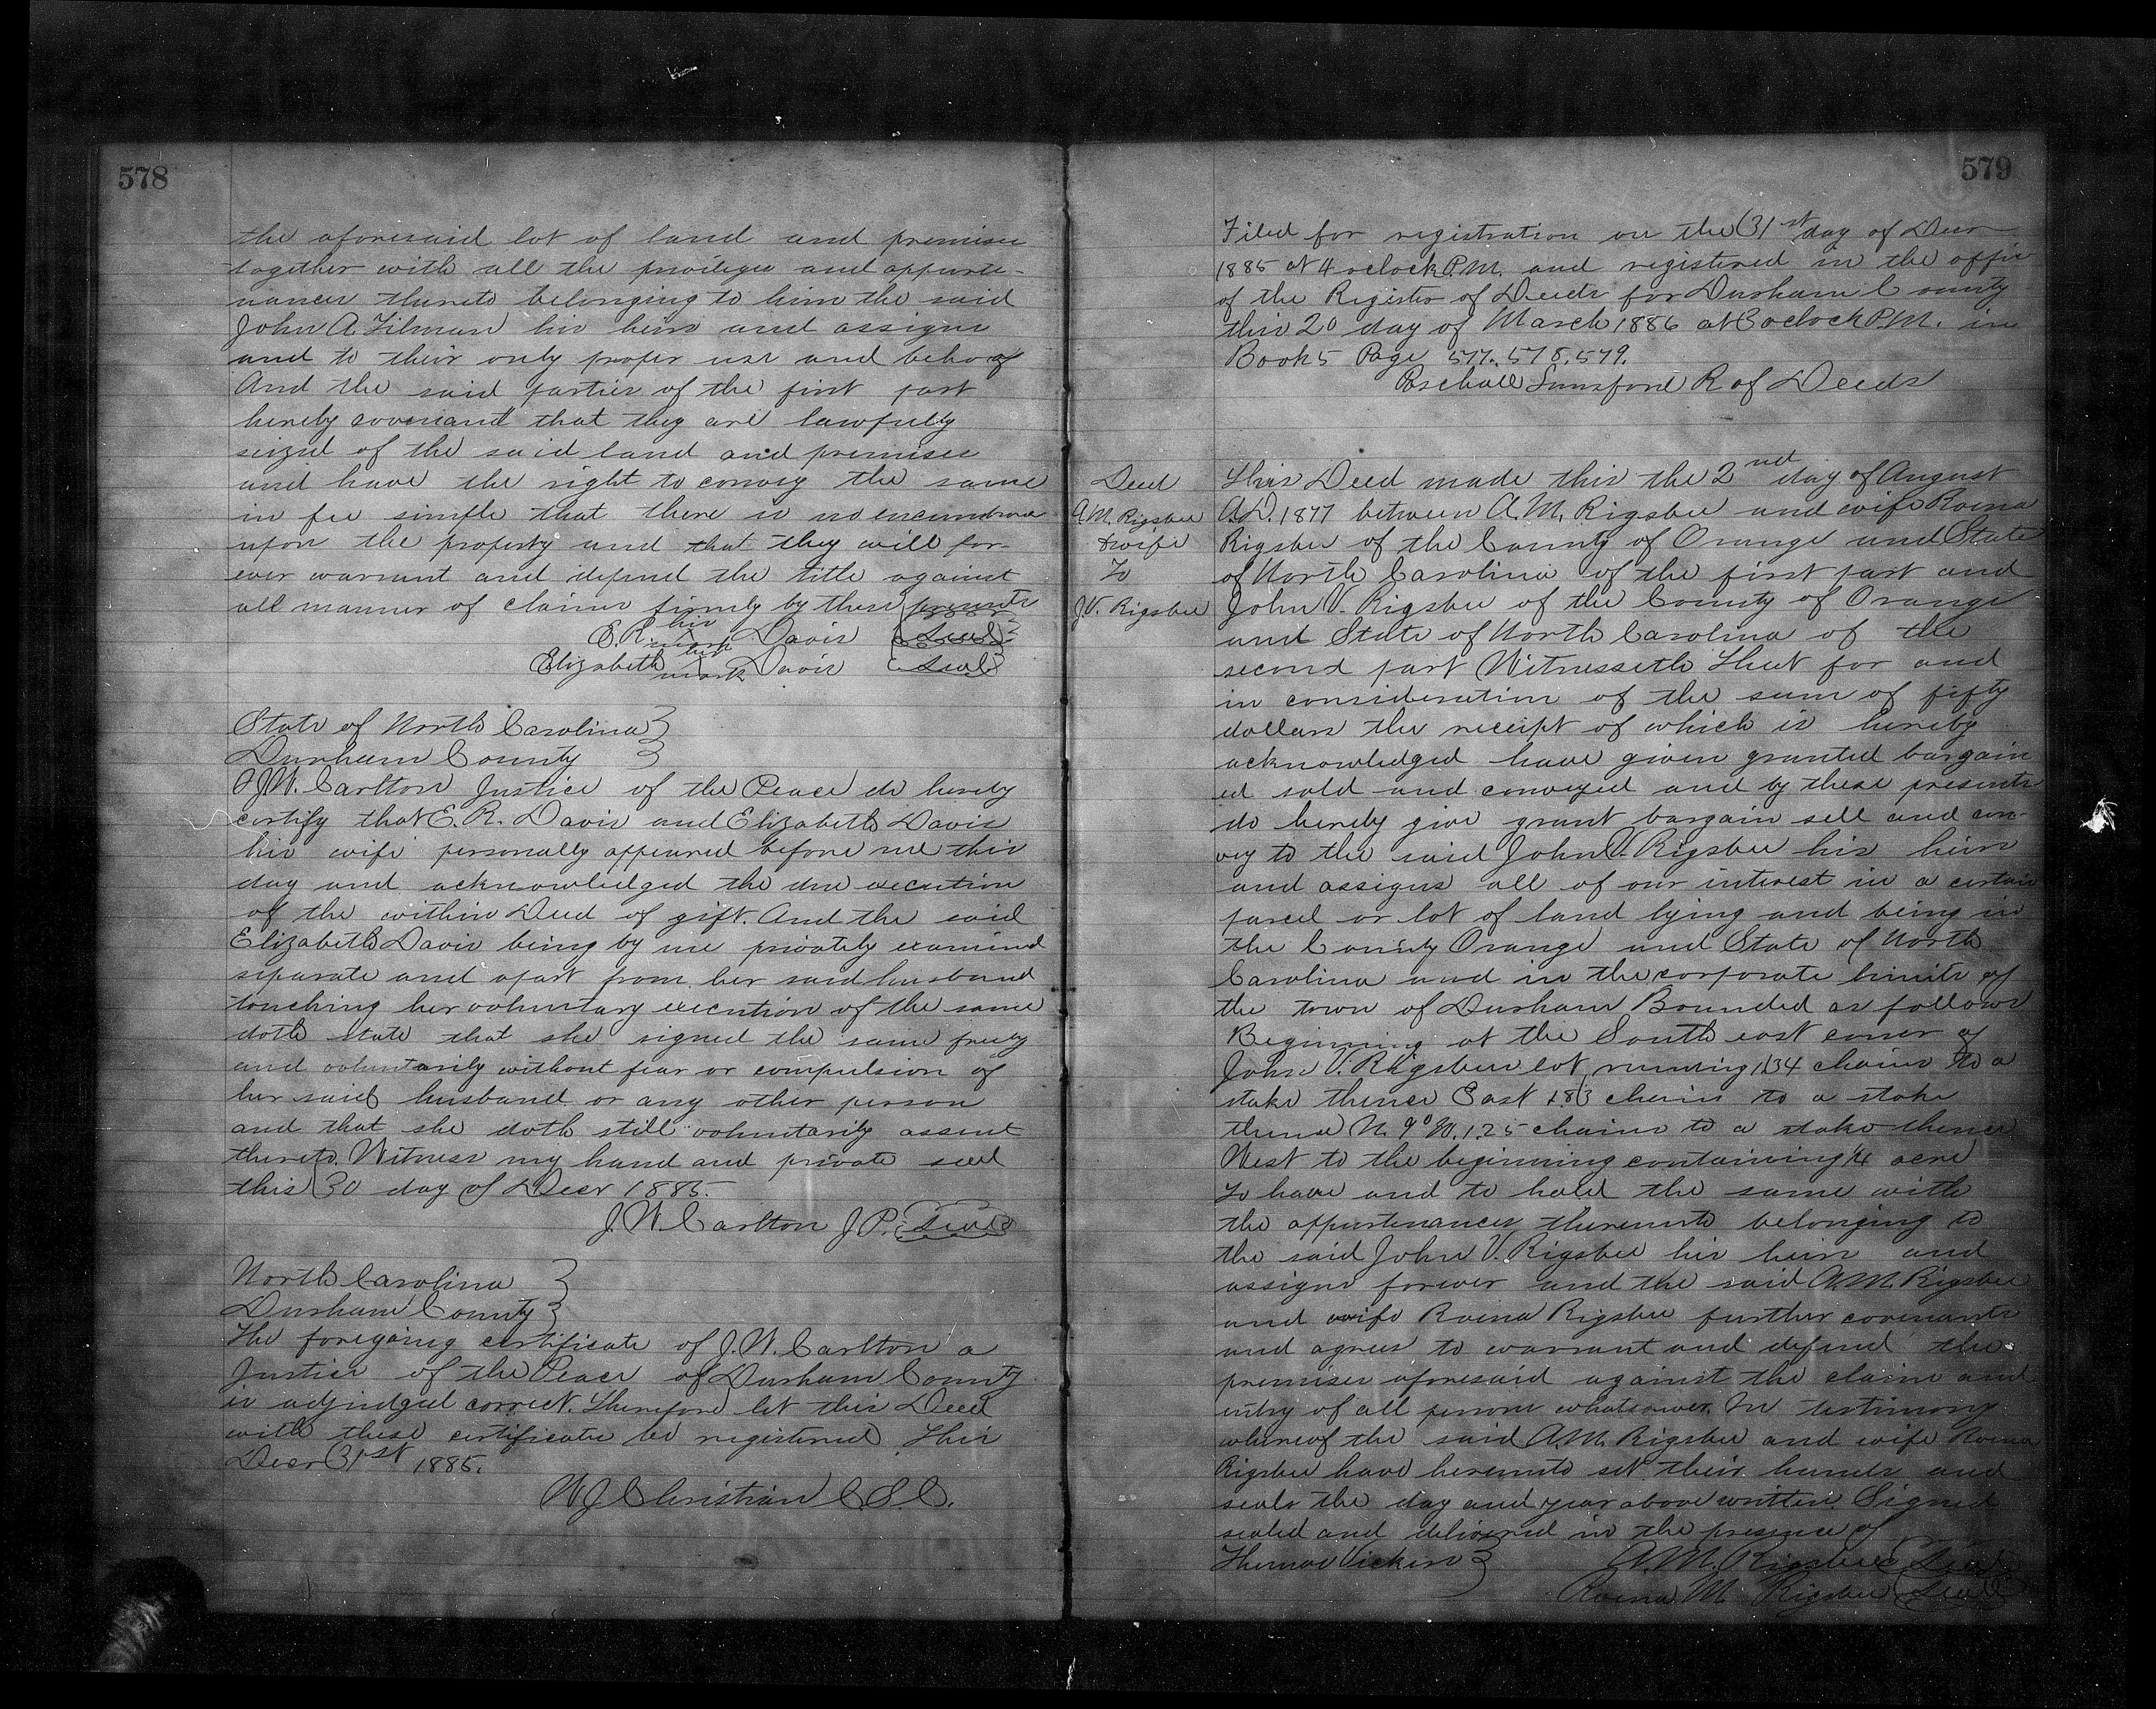 578
the aforesaid lot of land and premises
together with all the privileges and appurte-
nances thereto belonging to him the said
John A. Tilman his heirs and assigns
and to their only proper use and behoof
And the said parties of the first part
hereby covenant that they are lawfully
seized of the said land and premises
and have the right to convey the same
in fee simple that there is no encumbrance
upon the property and that they will for-
ever warrant and defend the title against
all manner of claims firmly by these presents
E. R. his X mark Davis {Seal}
Elizabeth her X mark Davis {Seal}
State of North Carolina }
Durham County }
I J. W. Carlton Justice of the Peace do hereby
certify that E. R. Davis and Elizabeth Davis
his wife personally appeared before me this
day and acknowledged the due execution
of the within Deed of gift. And the said
Elizabeth Davis being by me privately examined
separate and apart from her said husband
touching her voluntary execution of the same
doth state that she signed the same freely
and voluntarily without fear or compulsion of
her said husband or any other person
and that she doth still voluntarily assent
thereto. Witness my hand and private seal
this 30 day of Decr 1885.
J. W. Carlton J. P. {Seal}
North Carolina }
Durham County }
The foregoing certificate of J. W. Carlton a
Justice of the Peace of Durham County
is adjudged correct. Therefore let this Deed
with these certificates be registered This
Decr 31st 1885.
W J Christian C S. C.
579
Filed for registration on the 31st day of Decr
1885 at 4 oclock P.M. and registered in the office
of the Register of Deeds for Durham County
this 20 day of March 1886 at 3 oclock P.M. in
Book 5 Page 577. 578. 579.
Paschall Lunsford R of Deeds
Deed
A.M. Rigsbee
& wife
To
J.V. Rigsbee
This Deed made this the 2nd day of August
A.D. 1877 between A. M. Rigsbee and wife Roena
Rigsbee of the County of Orange and State
of North Carolina of the first part and
John V. Rigsbee of the County of Orange
and State of North Carolina of the
second part Witnesseth That for and
in consideration of the sum of fifty
dollars the receipt of which is hereby
acknowledged have given granted bargain
ed sold and conveyed and by these presents
do hereby give grant bargain sell and con-
vey to the said John V. Rigsbee his heirs
and assigns all of our interest in a certain
parcel or lot of land lying and being in
the County Orange and State of North
Carolina and in the corporate limits of
the town of Durham Bounded as follows
Beginning at the South east corner of
John V. Rigsbees lot running 1.34 chains to a
stake thence East 1.83 chains to a stake
thence N. 9° W. 1.25 chains to a stake thence
West to the beginning containing 1/4 acre
To have and to hold the same with
the appurtenances thereunto belonging to
the said John V. Rigsbee his heirs and
assigns forever and the said A. M. Rigsbee
and wife Roena Rigsbee further covenants
and agrees to warrant and defend the
premises aforesaid against the claim and
entry of all persons whatsoever. In testimony
whereof the said A. M. Rigsbee and wife Roena
Rigsbee have hereunto set their hands and
seals the day and year above written. Signed
sealed and delivered in the presence of
Thomas Vickers } A. M. Rigsbee {Seal}
Roena M Rigsbee {Seal}